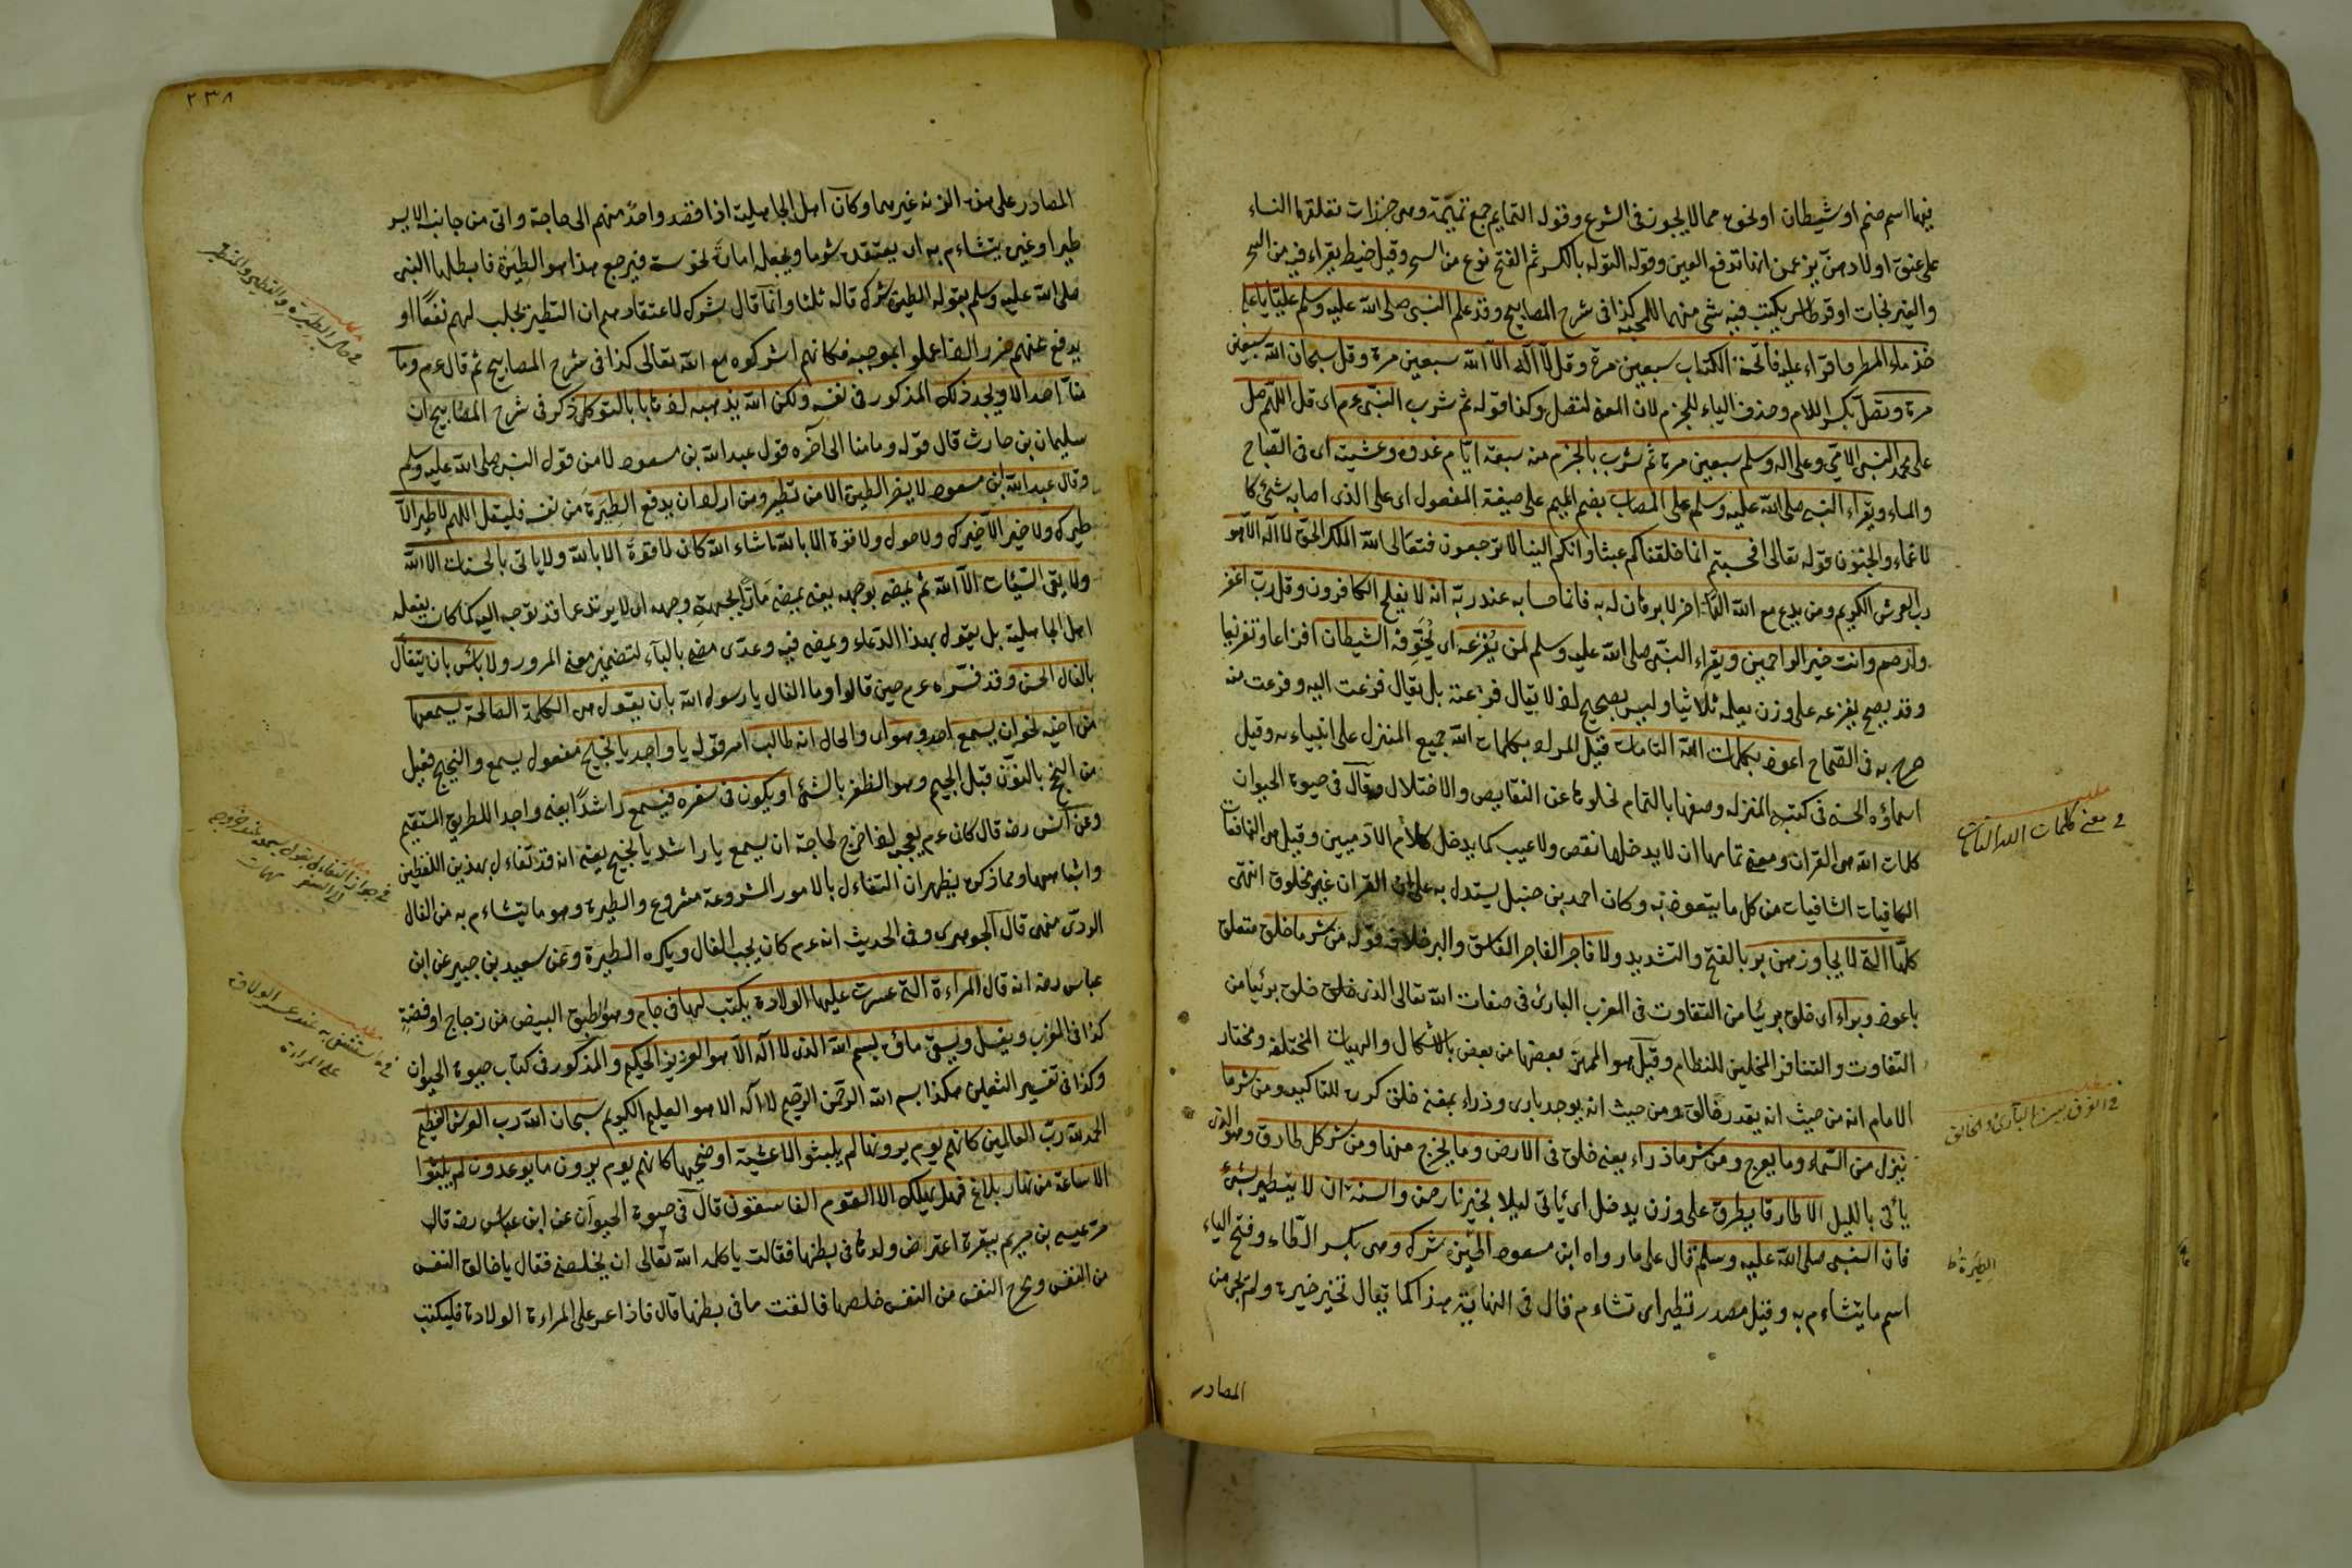 فيها اسم صنم او شيطان او نحوه مما لا يجوز في الشرع وقوله التمايم جمع تميمة وهي خرزات تعلقها النساء
على عنق اولادهن يزعمن انها تدفع العين وقوله التوله بالكسر ثم الفتح نوع من السحر وقيل خيط يقراء فيه من السحر
والنيرنجات او قرطاس يكتب فيه شي منها للمحبة كذا في شرح المصابيح وقد علم النبي صلى الله عليه وسلم عليا يا علي
خذ ماء المطر فاقراء عليه فاتحة الكتاب سبعين مرة وقل لا اله الا الله سبعين مرة وقل سبحان الله سبعين
مرة وتصل بكسر اللام وحذف الياء للجزم لان المعنى لتصل وكذا قوله ثم تشرب النبي عم اى قل اللهم صل
على محمد النبي الامي وعلى اله وسلم سبعين مرة ثم تشرب بالجزم منه سبعة ايام غدوه وعشية اى في الصباح
والمساء ويقراء النبي صلى الله عليه وسلم على المصاب بضم الميم على صيغة المفعول اى على الذى اصابه شئ كا
لاغماء والجنون قوله تعالى افحسبتم انما خلقناكم عبثا وانكم الينا لا ترجعون فتعالى الله الملك الحق لا اله الا هو
رب العرش الكريم ومن يدع مع الله الها اخر لا برهان له به فانما حسابه عند ربه انه لا يفلح الكافرون وقل رب اغفر
وارحم وانت خير الراحمين ويقراء النبي صلى الله عليه وسلم لمن يفزعه اى يخوفه الشيطان افزاعا وتفزيعا
وقد يصح يفزعه على وزن يعلمه ثلاثيا وليس بصحيح اذ لا يقال فزعته بل يقال فزعت اليه وفزعت منه
صرح به في الصحاح اعوذ بكلمات الله التامات قيل المراد بكلمات الله جميع المنزل على انبياءه وقيل
اسماؤه الحسنى في كتبه المنزله وصفها بالتمام لخلوها عن النقايص والاختلال وقال في حيوة الحيوان
كلمات الله هى القران ومعنى تمامها ان لا يدخلها نقص ولا عيب كما يدخل كلام الادميين وقيل هى النافعات
الكافيات الشافيات من كل ما يتعوذ به وكان احمد بن حنبل يستدل به على ان القران غير مخلوق انتهى
كلها التى لا يجاوزهن بر بالفتح والتشديد ولا فاجر الفاجر الفاسق والبر خلافه قوله من شر ما خلق متعلق
باعوذ وبراء اى خلق بريئا من التفاوت في المغرب البارئ في صفات الله تعالى الذى خلق خلق بريئا من
التفاوت والتنافر المخلين للنظام وقيل هو المميز بعضها من بعض بالاشكال والهيات المختلفة ومختار
الامام انه من حيث انه يقدر خالق ومن حيث انه يوجد بارى وذراء بمعنى خلق كرره للتاكيد ومن شر ما
ينزل من السماء وما يعرج ومن شر ما ذراء يعنى خلق في الارض وما يخرج منها ومن شر كل طارق وهو الذى
يأتى بالليل الا طارقا يطرق على وزن يدخل اى يأتى ليلا بخير يا رحمن والسنة ان لا يتطير بشئ
فان النبي صلى الله عليه وسلم قال على ما رواه ابن مسعود الطيرة شرك وهى بكسر الطاء وفتح الياء
اسم ما يتشاءم به وقيل مصدر تطير اى تشاءم قال في النهاية هذا كما يقال تخير خيرة ولم يجئ من
المصادر
في معنى كلمات الله التامات
في الفرق بين البارئ والخالق
الطيرة ط
٢٣٨
المصادر على هذه الزنه غيرهما وكان اهل الجاهلية اذا قصد واحد منهم الى حاجة واتى من جانبه الايسر
طيرا وغيره يتشاءم به اى يعتقده شوما ويجعله امارة نحوسة فيرجع هذا هو الطيرة فابطلها النبي
صلى الله عليه وسلم بقوله الطيرة شرك قاله ثلثا وانما قال شرك لاعتقادهم ان التطير يجلب لهم نفعا او
يدفع عنهم ضررا اذا عملوا بموجبه فكانهم اشركوه مع الله تعالى كذا في شرح المصابيح ثم قال عم وما
منا احد الا ويجد ذلك المذكور في نفسه ولكن الله يذهبه بالتوكل ذكر في شرح المصابيح ان
سليمان بن حارث قال قوله وما منا الى آخره قول عبد الله بن مسعود لا من قول النبي صلى الله عليه وسلم
وقال عبد الله ابن مسعود لا يضر الطيرة الا من تطير ومن اراد ان يدفع الطيرة من نفسه فليقل اللهم لا طير الا
طيرك ولا خير الا خيرك ولا حول ولا قوة الا بالله ما شاء الله كان لا قوة الا بالله ولا ياتى بالحسنات الا الله
ولا يقى السيئات الا الله ثم يمضى بوجهه يعنى يمضى مارا لجهة وجهه اى لا يرتد عما قد توجه اليه كما كان يفعله
اهل الجاهلية بل يقول بهذا الدعاء ويمضى فيه وعدى مضى بالباء لتضمين معنى المرور ولا باس بان يتفأل
بالفال الحسن وقد فسره عم حين قالوا وما الفال يا رسول الله بان يقول هى الكلمة الصالحة يسمعها
من اخيه نحو ان يسمع احد وهو اى والحال انه طالب امر قوله يا واجد يا نجيح مفعول يسمع والنجيح فعيل
من النجح بالنون قبل الجيم وهو الظفر بالشئ او يكون في سفره فيسمع راشدا يعنى واجد الطريق المستقيم
وعن انس رضه قال كان عم يعجبه اذا خرج لحاجة ان يسمع يا راشد يا نجيح يعنى انه قد تفاءل بهذين اللفظين
واشباههما ومما ذكر يظهر ان التفاءل بالامور المشروعة مشروع والطيرة وهو ما يتشاءم به من الفال
الردى منهى قال الجوهرى وفى الحديث انه عم كان يحب الفال ويكره الطيرة وعن سعيد بن جبير عن ابن
عباس رضه انه قال المراءة التى عسرت عليها الولادة يكتب لها في جام وهو طبق ابيض من زجاج او فضة
كذا في المغرب ويغسل ويسقى ماؤه بسم الله الذى لا اله الا هو العزيز الحكيم والمذكور في كتاب حيوة الحيوان
وكذا في تفسير الثعلبى هكذا بسم الله الرحمن الرحيم لا اله الا هو العليم الكريم سبحان الله رب العرش العظيم
الحمد لله رب العالمين كانهم يوم يرونها لم يلبثوا الا عشية او ضحيها كانهم يوم يرون ما يوعدون لم يلبثوا
الا ساعة من نهار بلاغ فهل يهلك الا القوم الفاسقون قال في حيوة الحيوان عن ابن عباس رضه قال
مر عيسى بن مريم ببقرة اعترض ولدها في بطنها فقالت يا كلمة الله تعالى ان يخلصنى فقال يا خالق النفس
من النفس ومخرج النفس من النفس خلصها فالقت ما في بطنها قال فاذا عسر على المراءة الولادة فليكتب